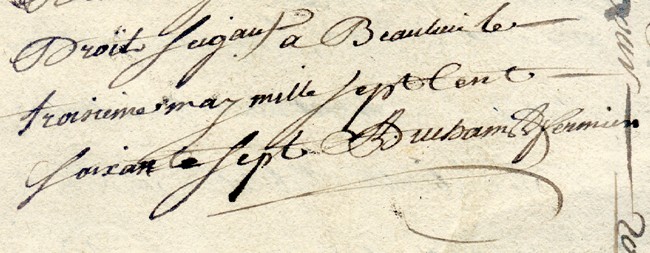 Droit Seigau a Beaulieu le
troisieme may mille sept Cent
soixante sept Duchaine fermier